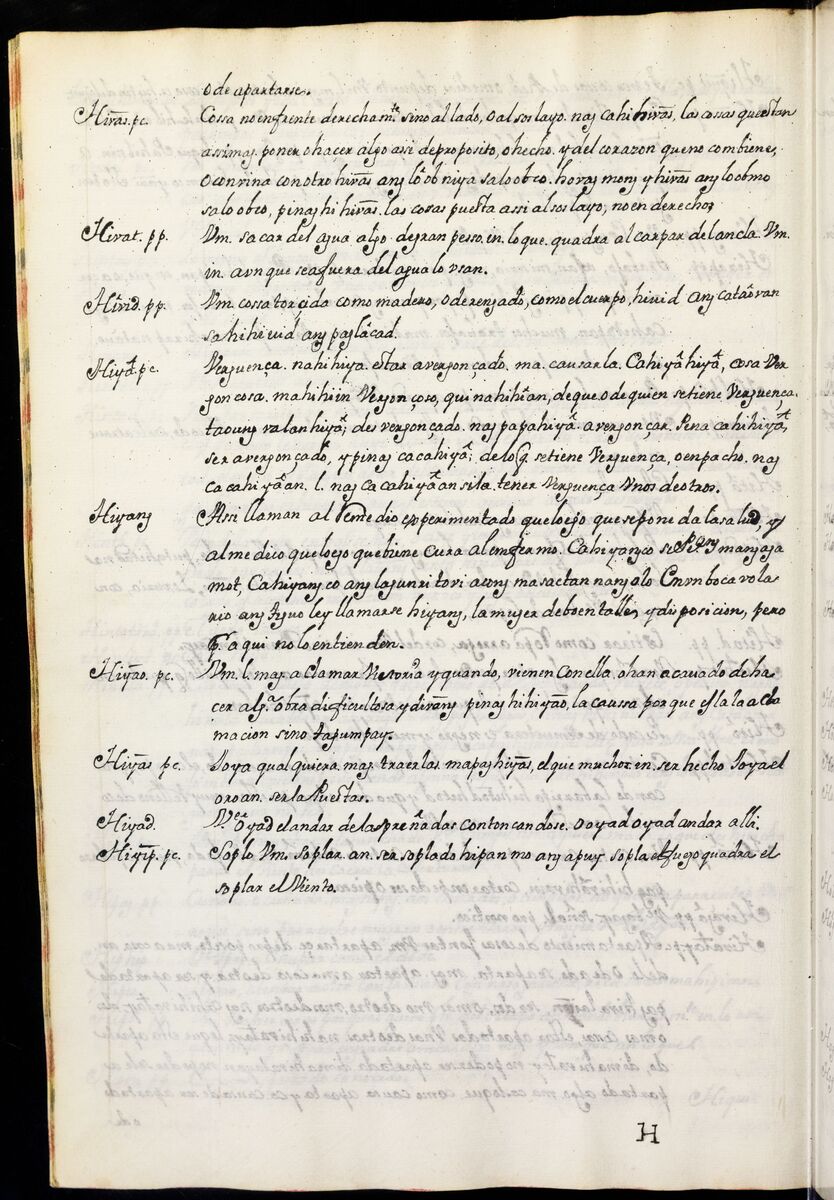 o de apartarse.
Hirãs. pc. Cossa no en frente derecham.te sino al lado, o al soslayo. nag cahi hirãs, las cossas que estan
assi mag. poner o hacer algo assi de proposito, o hecho. y del corazon que no combiene,
o con rina con otro hirãs ang lo ob niya sa loobco. horag mong yhirãs ang loobmo
sa loobco, pinag hi hirãs. las cosas puesta assi al soslayo, no en derecho
Hirat. pp. Vm. sacar del agua algo de gran pesso. in. lo que. quadra al çarpar de la ncla. Vm.
in. avnque sea fuera del agua lo vsan.
Hivid. pp. Vm. cossa torçida como madero, o derengado, como el cuerpo, hivid ang catãovan
sa hihivid ang paglãcad.
Hiyã. pc. Verguença. nahihiya. estar avergonçado. ma. causarla. Cahiyãhiyã, cosa ver
gonçosa. mahihiin vergonçoso, quinahihĩan, de que o de quien se tiene verguença.
taoung valan hiyã; desvergonçado. nag papahiyã. avergonçar. Pena cahihiyã,
ser avergonçado, y pinag cacahiyã; de lo q̃ se tiene verguença, o enpacho. nag
cacahiyãan. l. nag cacahiyãan sila. tener verguença vnos de otros.
Hiyang Assi llaman al Remedio experimentado que luego que se pone da la salud, y
al medico que luego que biene cura al enfermo. Cahiyangco si P.e ang manga ga
mot, Cahiyang co ang lagundi tovi acong masactan nang olo En vn bocavola
rio antiguo ley llamarse hiyang, la mujer de boen talle, y disposicion, pero
p.r aqui no lo entienden.
Hiyão. pc. Vm. l. mag. aclamar Victoria y quando, vienen con ella, o han acavado de ha
cer alg.a obra dificultosa y dirãng pinag hihiyão, la caussa porque es la acla
macion sino tagumpay.
Hiyãs pc. Joya qualquiera. mag. traerlas. mapaghiyãs, el que mucho. in. ser hecho Joya el
oro an. ser la Puestas.
Hiyad. V.e oyad el andar de las preñadas contoncandose. o oyad oyad andar alli.
Hiyĩp. pc. Soplo Vm. soplar. an. ser soplado hipan mo ang apuy sopla el fuego quadra el
soplar el Viento.
H